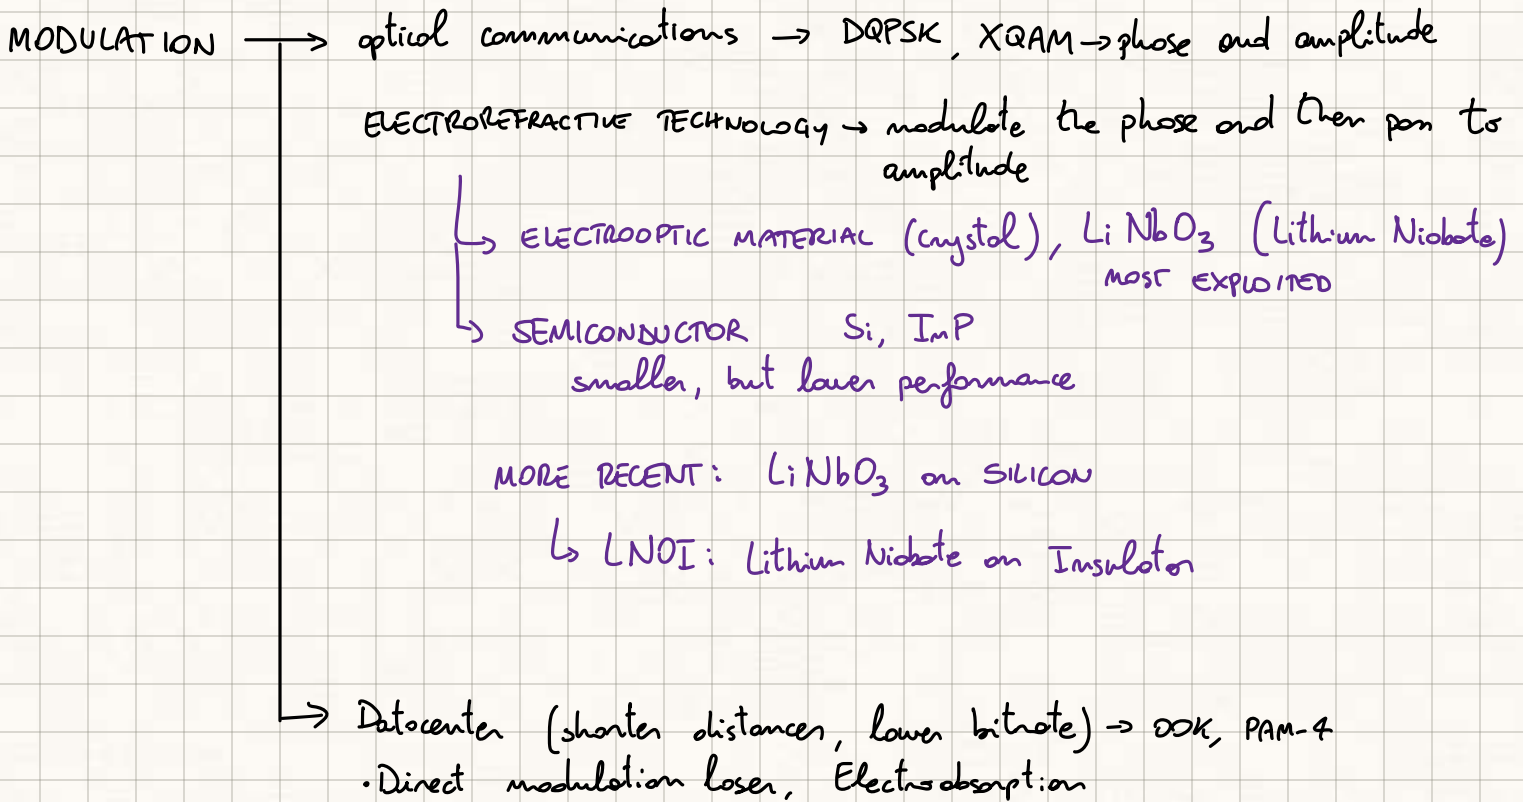 MODULATION → optical communications → DQPSK, XQAM → phase and amplitude
ELECTROREFRACTIVE TECHNOLOGY → modulate the phase and then pass to
amplitude
ELECTROOPTIC MATERIAL (crystal), LiNbO3 (Lithium Niobate)
MOST EXPLOITED
SEMICONDUCTOR Si, InP
smaller, but lower performance
MORE RECENT: LiNbO3 on SILICON
LNOI: Lithium Niobate on Insulator
Datacenter (shorter distances, lower bitrate) → OOK, PAM-4
• Direct modulation laser, Electroabsorption